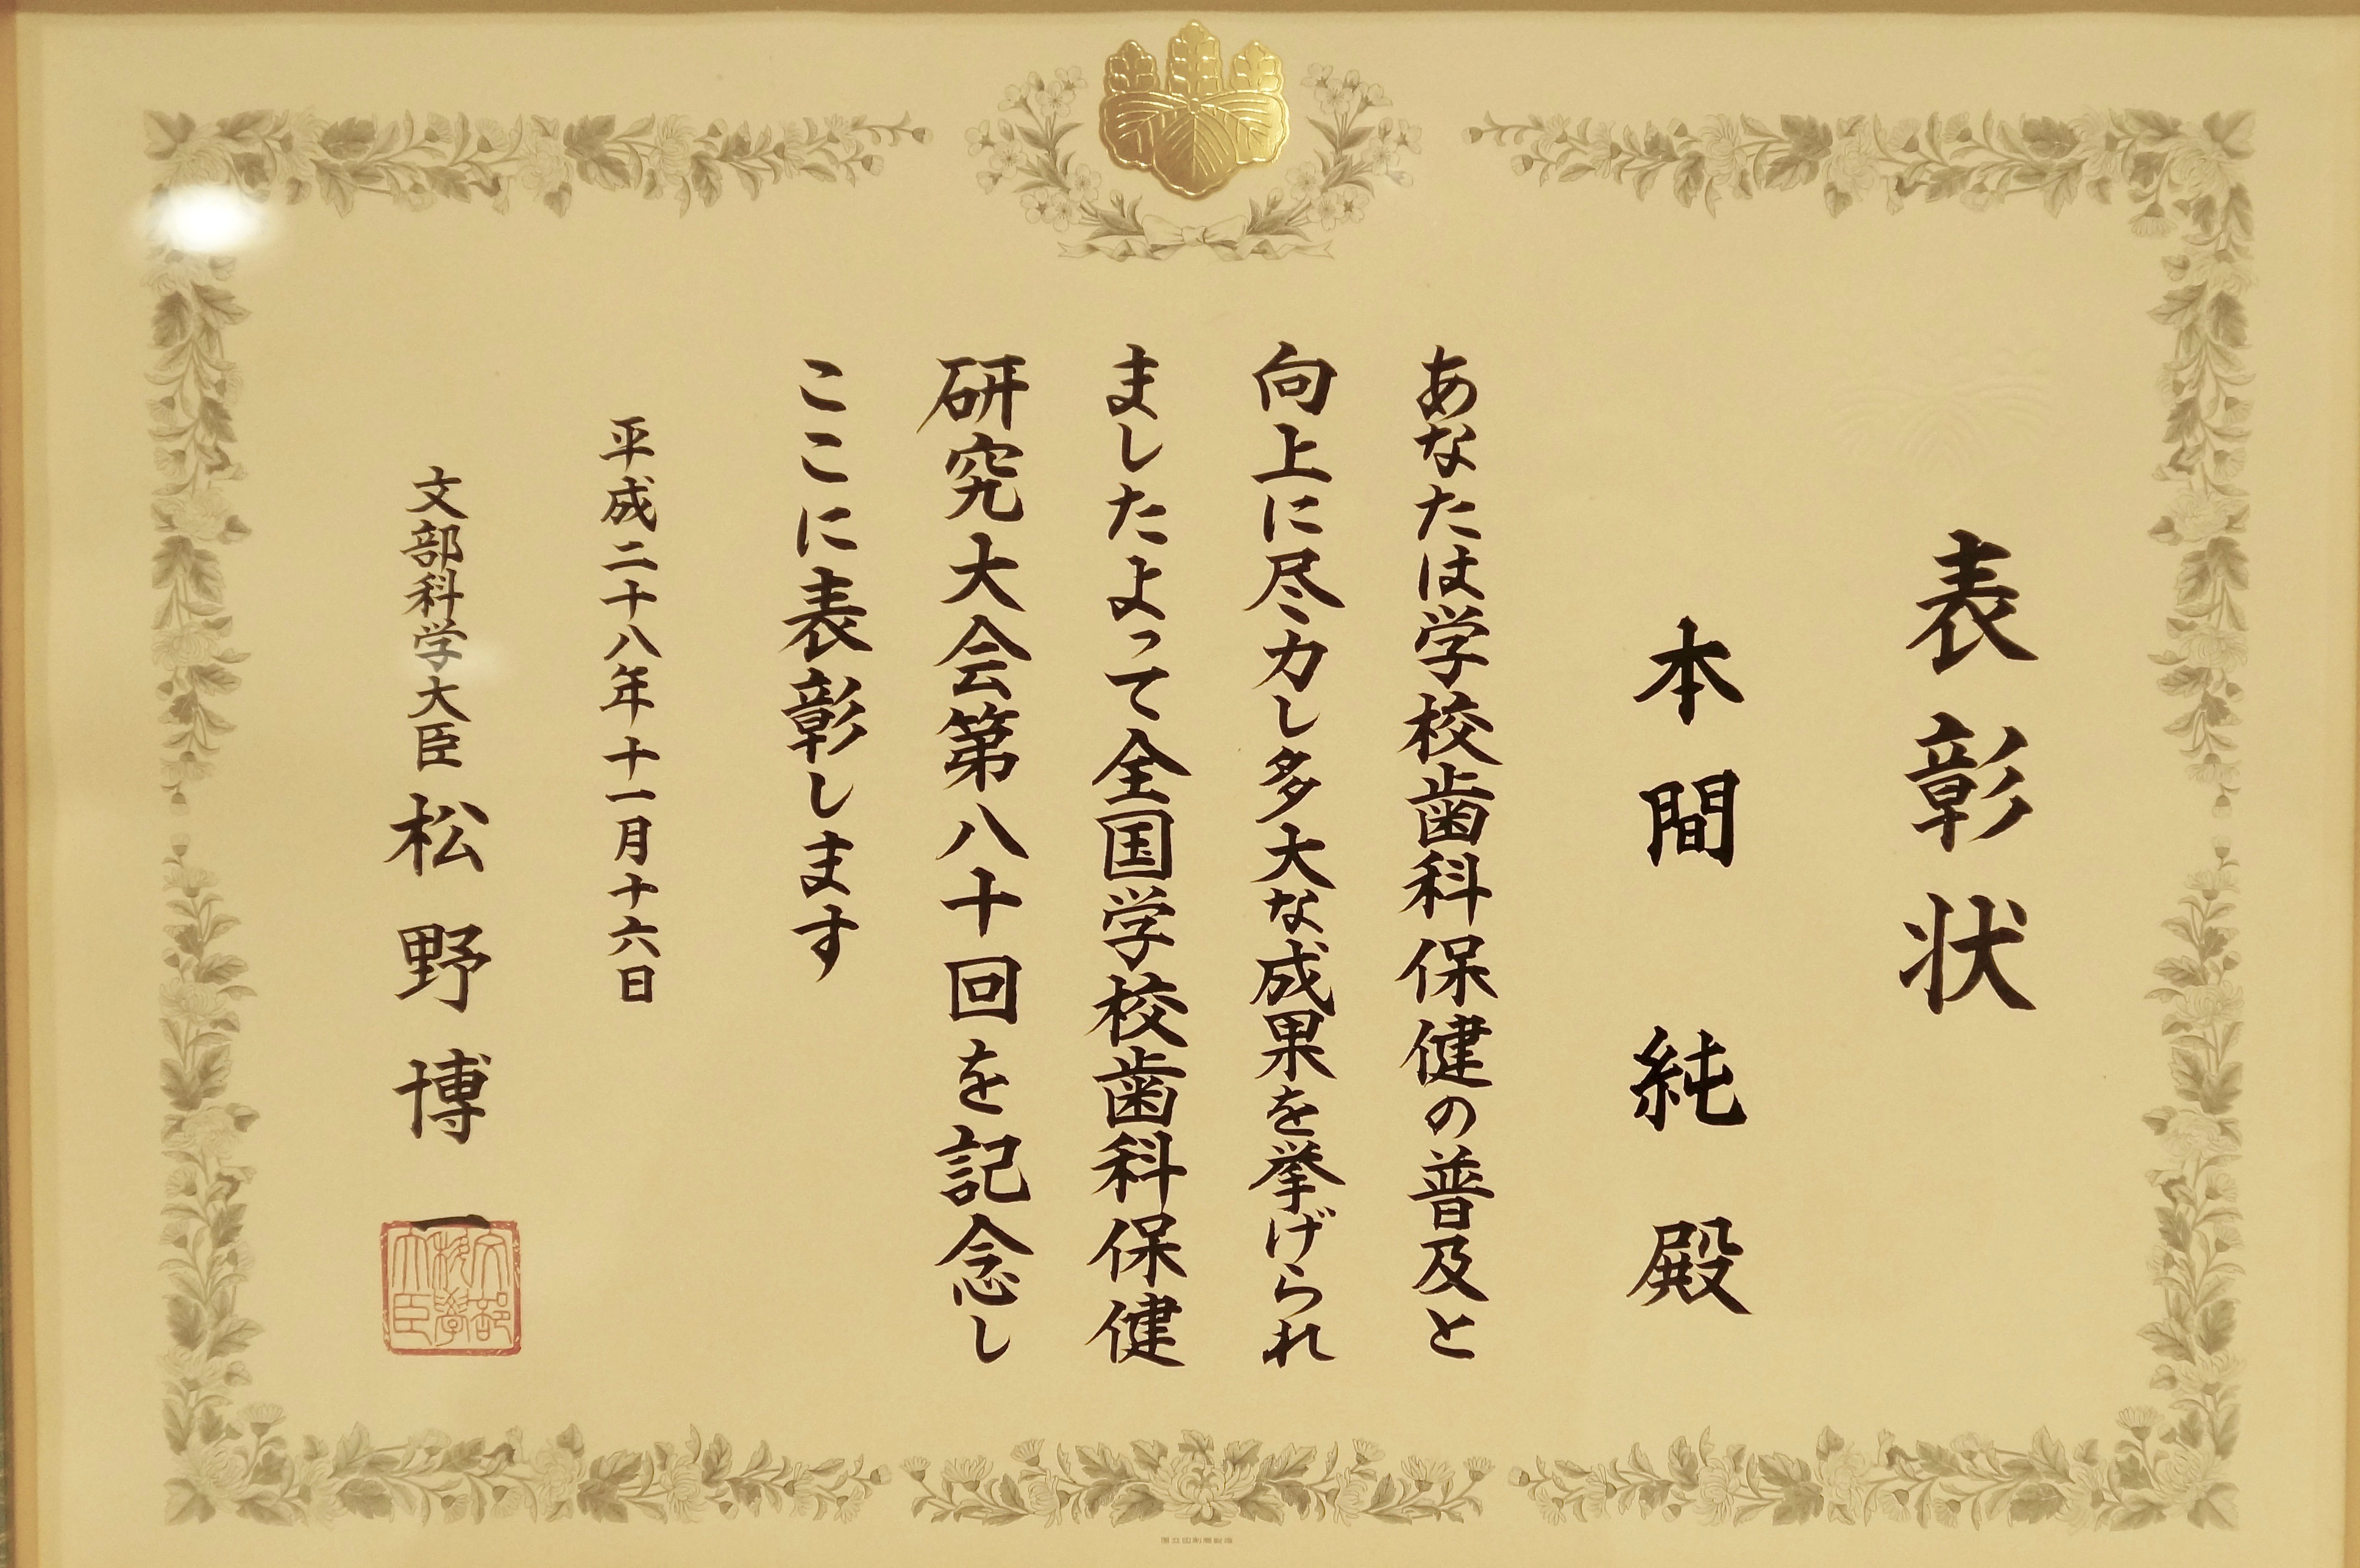 表彰状
本間 純 殿
あなたは学校歯科保健の普及と
向上に尽力し多大な成果を挙げられ
ましたよって全国学校歯科保健
研究大会第八十回を記念し
ここに表彰します
平成二十八年十一月十六日
文部科学大臣 松野博一
文部
科学
大臣
国立印刷局製造